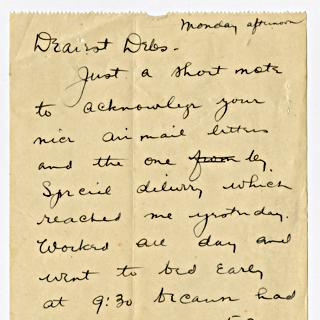 Monday afternoon
Dearest Debs -
Just a short note
to acknowledge your
nice air mail letters
and the one from by
Special delivery which
reached me yesterday.
Worked all day and
went to bed early
at 9:30 because had